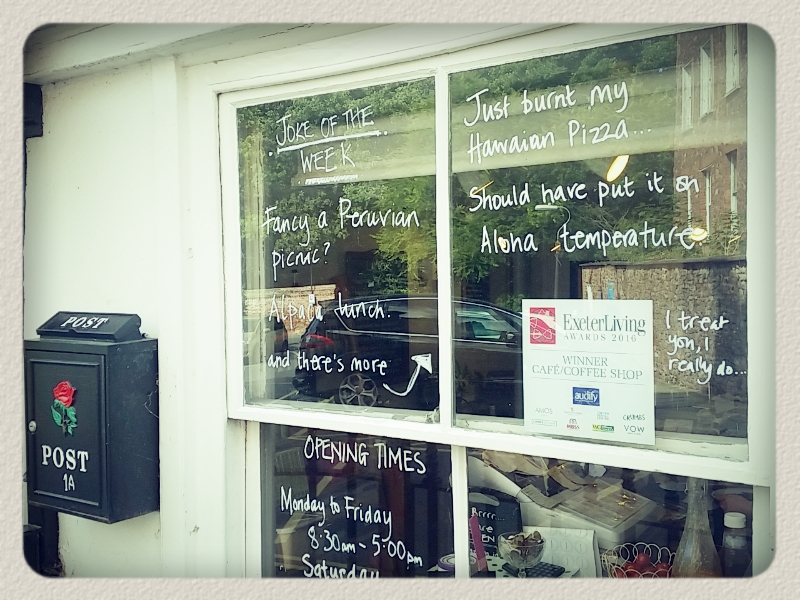 JOKE OF THE
WEEK
Fancy a Peruvian
picnic?
Alpaca lunch.
and there's more
Just burnt my
Hawaian Pizza...
Should have put it on
Aloha temperature.
I treat
you, I
really do...
ExeterLiving
AWARDS 2016
WINNER
CAFÉ/COFFEE SHOP
audify
AMOS
CRUMBS
VOW
POST
POST
1A
OPENING TIMES
Monday to Friday
8:30am - 5:00pm
Saturday